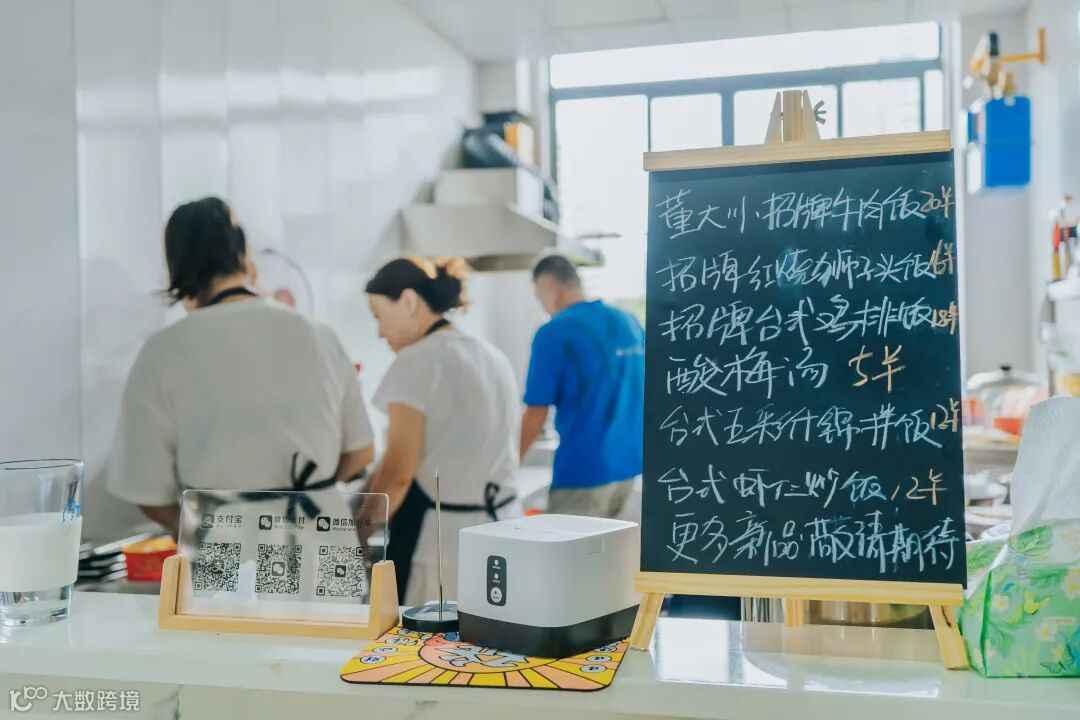 董大川·招牌牛肉饭20半
招牌红烧狮子头饭16半
招牌台式鸡排饭18半
酸梅汤 5半
台式五彩什锦拌饭12半
台式虾仁炒饭12半
更多新品敬请期待
支付宝
ALIPAY
微信支付
微信加好友
10100 大数跨境